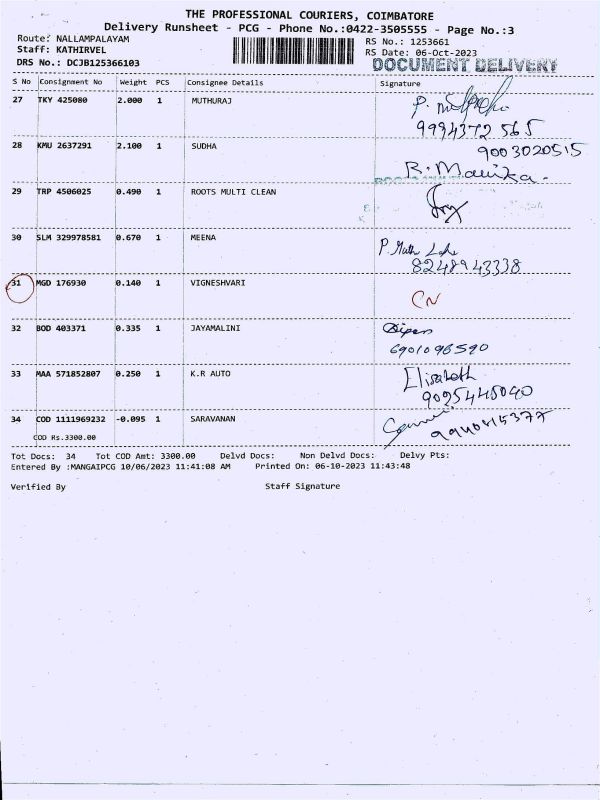 THE PROFESSIONAL COURIERS, COIMBATORE
Delivery Runsheet - PCG - Phone No.:0422-3505555 - Page No.:3
Route: NALLAMPALAYAM RS No.: 1253661
Staff: KATHIRVEL RS Date: 06-Oct-2023
DRS No.: DCJB125366103 DOCUMENT DELIVERY
S No Consignment No Weight PCS Consignee Details Signature
27 TKY 425080 2.000 1 MUTHURAJ
9994372565
28 KMU 2637291 2.100 1 SUDHA 9003020515
R. Mauika.
29 TRP 4506025 0.490 1 ROOTS MULTI CLEAN
30 SLM 329978581 0.670 1 MEENA
8248943338
31 MGD 176930 0.140 1 VIGNESHVARI
CN
32 BOD 403371 0.335 1 JAYAMALINI
6901098590
33 MAA 571852807 0.250 1 K.R AUTO Elisabeth
9025448040
34 COD 1111969232 -0.095 1 SARAVANAN
COD Rs.3300.00
Tot Docs: 34 Tot COD Amt: 3300.00 Delvd Docs: Non Delvd Docs: Delvy Pts:
Entered By :MANGAIPCG 10/06/2023 11:41:08 AM Printed On: 06-10-2023 11:43:48
Verified By Staff Signature